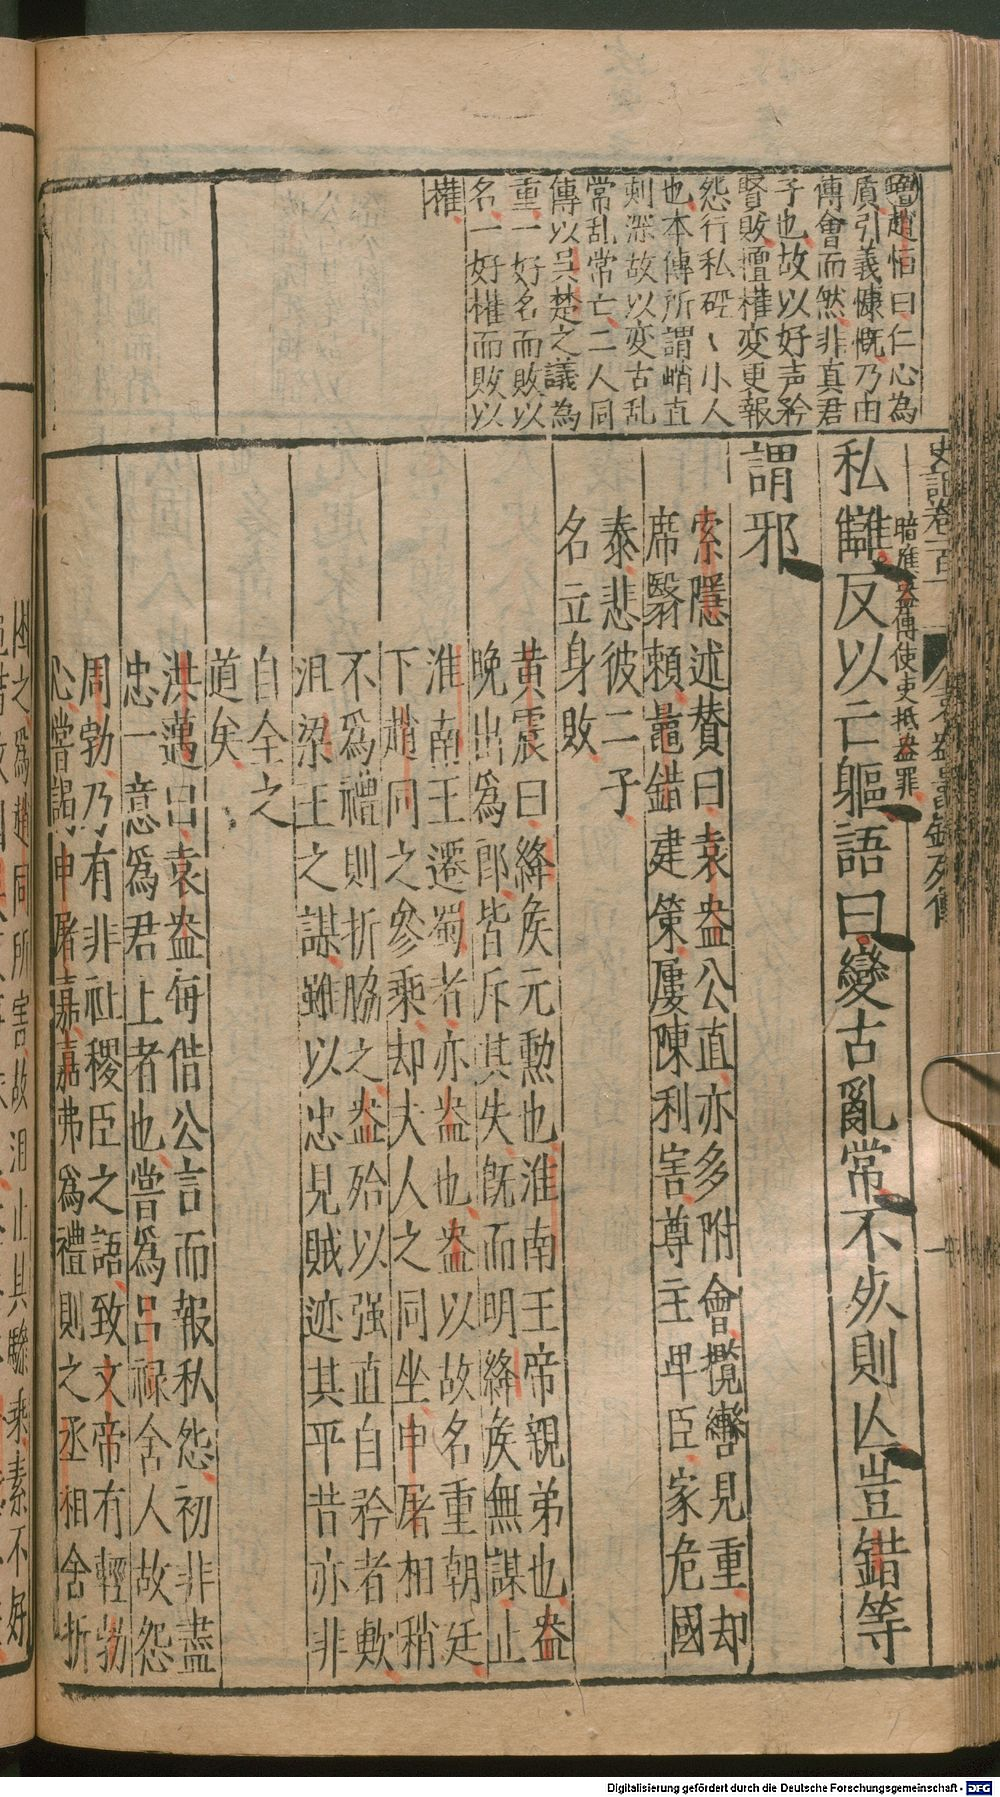 趙恒曰仁心為
質引義慷慨乃由
傳會而然非真君
子也故以好声矜
賢敗擅權変更報
怨行私硜〻小人
也本傳所謂峭直
刻深故以変古乱
常乱常亡二人同
傳以吳楚之議為
重一好名而敗以
名一好權而敗以
權
史記卷一百一
袁盎晁錯列傳
暗應盎傳使吏抵盎罪
私讎反以亡軀語曰變古亂常不死則亡豈錯等
謂邪
索隱述贊曰袁盎公直亦多附會攬轡見重却
席翳賴鼂錯建策屢陳利害尊主卑臣家危國
泰悲彼二子
名立身敗
黄震曰絳侯元勲也淮南王帝親弟也盎
晚出爲郎皆斥其失旣而明絳侯無謀止
淮南王遷蜀者亦盎也盎以故名重朝廷
下趙同之參乘却夫人之同坐申屠相稍
不爲禮則折脇之盎殆以强直自矜者歟
沮梁王之謀雖以忠見賊迹其平昔亦非
自全之
道矣
洪邁曰袁盎每借公言而報私怨初非盡
忠一意爲君上者也嘗爲吕祿舍人故怨
周勃乃有非社稷臣之語致文帝有輕勃
心嘗謁申屠嘉嘉弗爲禮則之丞相舍折
困之爲趙同所害故沮止其驂乘素不好
Digitalisierung gefördert durch die Deutsche Forschungsgemeinschaft - DFG